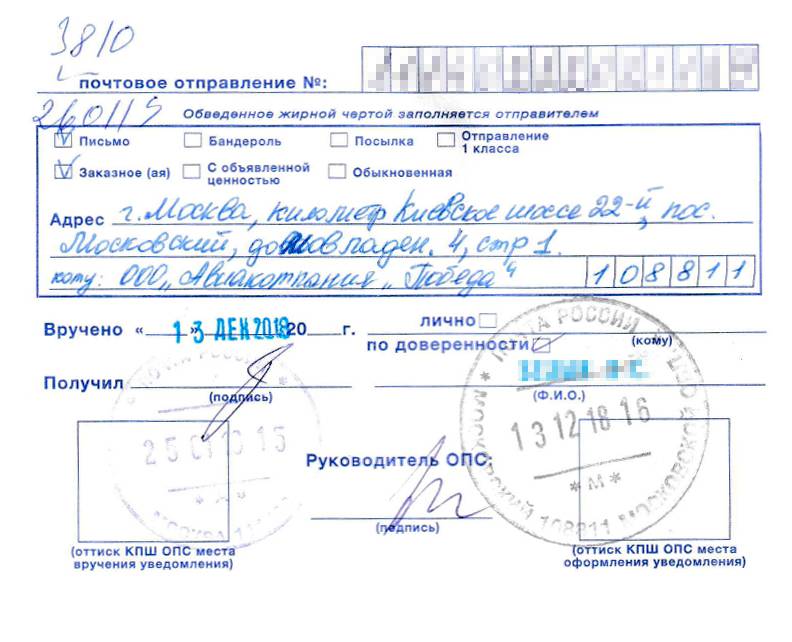 3810
почтовое отправление №:
260115
Обведенное жирной чертой заполняется отправителем
Письмо Бандероль Посылка Отправление 1 класса
Заказное (ая) С объявленной ценностью Обыкновенная
Адрес г. Москва, километр Киевское шоссе 22-й, пос.
Московский, домовладен. 4, стр 1.
кому: ООО „Авиакомпания „Победа" 108811
Вручено « 13 ДЕК 2018 » 20 г. лично
по доверенности (кому)
Получил
(подпись) (Ф.И.О.)
ПОЧТА РОССИИ
13 12 18 16
* М *
МОСКОВСКИЙ 108811 МОСКОВСКОЙ ОБЛ.
ПОЧТА РОССИИ
* А *
МОСКВА
Руководитель ОПС:
(подпись)
(оттиск КПШ ОПС места
вручения уведомления)
(оттиск КПШ ОПС места
оформления уведомления)